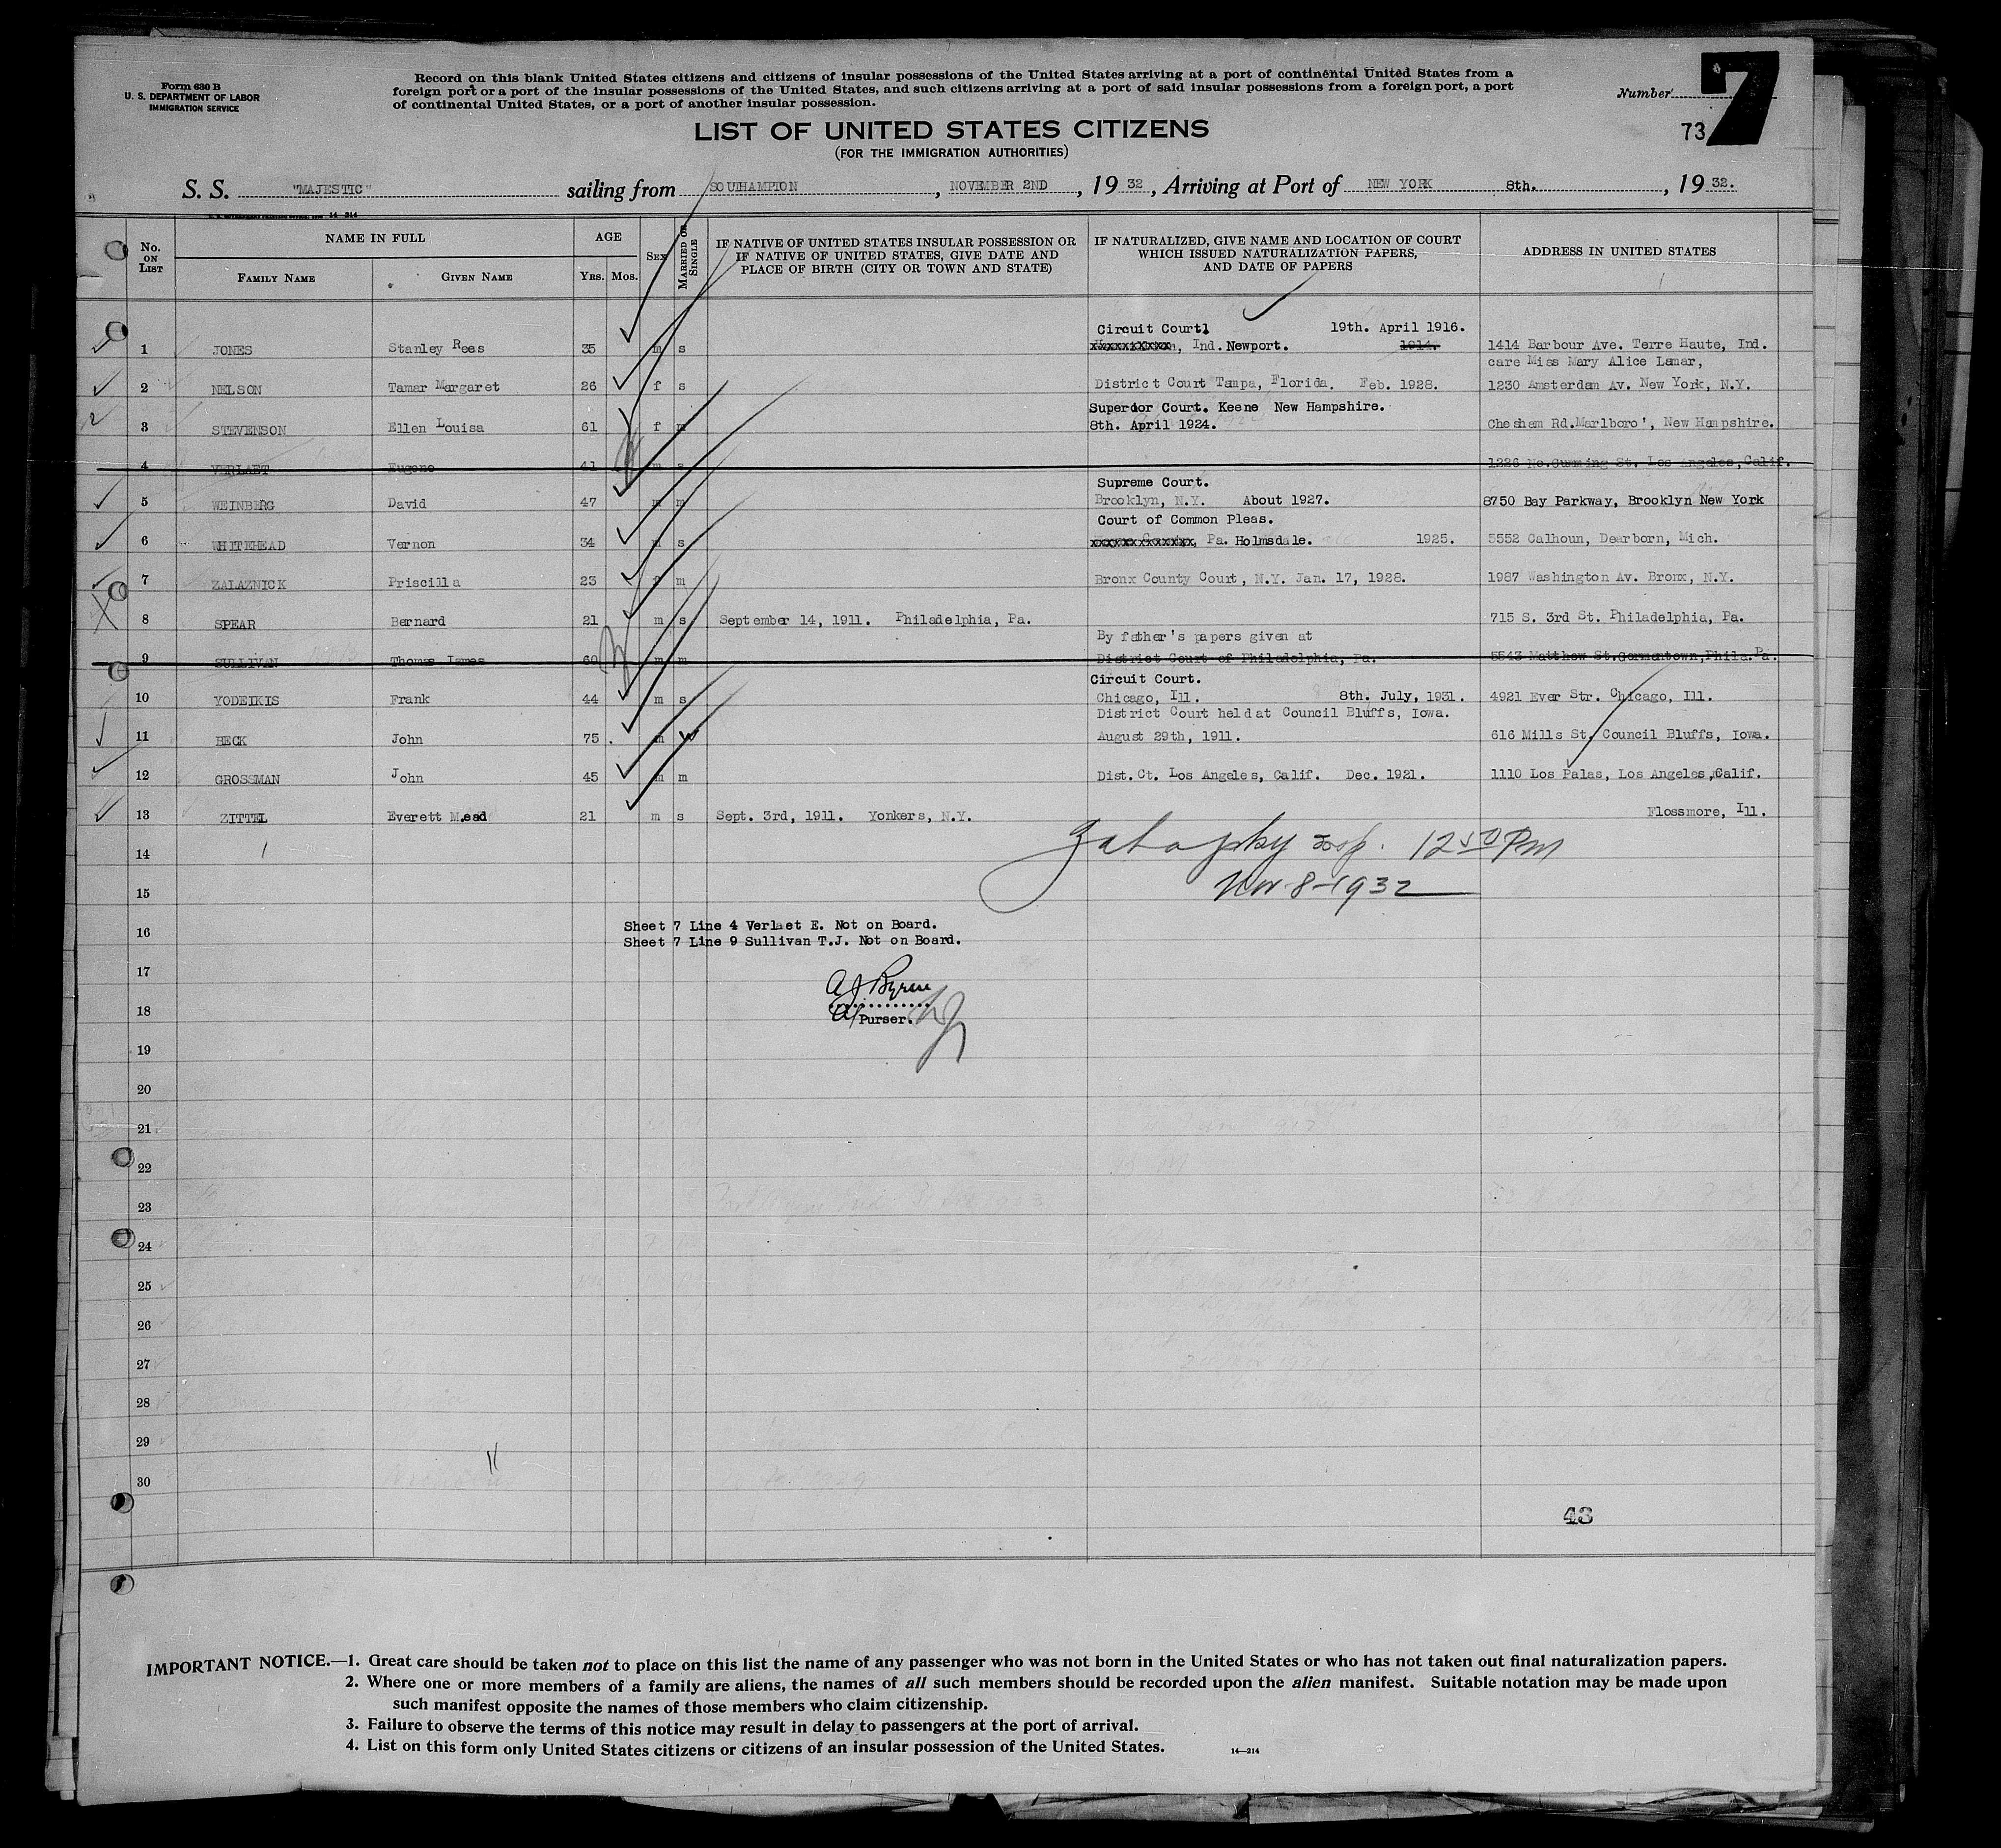 Form 630 B
U. S. DEPARTMENT OF LABOR
IMMIGRATION SERVICE
Record on this blank United States citizens and citizens of insular possessions of the United States arriving at a port of continental United States from a
foreign port or a port of the insular possessions of the United States, and such citizens arriving at a port of said insular possessions from a foreign port, a port
of continental United States, or a port of another insular possession.
Number
7
73
LIST OF UNITED STATES CITIZENS
(FOR THE IMMIGRATION AUTHORITIES)
S. S. "MAJESTIC" sailing from SOUTHAMPTON, NOVEMBER 2ND, 1932, Arriving at Port of NEW YORK 8th., 1932.
14-214
No. ON LIST
NAME IN FULL
FAMILY NAME
GIVEN NAME
AGE
YRS. MOS.
SEX
MARRIED OR SINGLE
IF NATIVE OF UNITED STATES INSULAR POSSESSION OR
IF NATIVE OF UNITED STATES, GIVE DATE AND
PLACE OF BIRTH (CITY OR TOWN AND STATE)
IF NATURALIZED, GIVE NAME AND LOCATION OF COURT
WHICH ISSUED NATURALIZATION PAPERS,
AND DATE OF PAPERS
ADDRESS IN UNITED STATES
Circuit Court 19th. April 1916.
1 JONES Stanley Rees 35 m s , Ind. Newport. 1914. 1414 Barbour Ave. Terre Haute, Ind.
care Miss Mary Alice Lamar,
2 NELSON Tamar Margaret 26 f s District Court Tampa, Florida. Feb. 1928. 1230 Amsterdam Av. New York, N.Y.
Superior Court. Keene New Hampshire.
3 STEVENSON Ellen Louisa 61 f m 8th. April 1924. Chesham Rd.Marlboro', New Hampshire.
4 VERLAET Eugene 41 m s 1226 No.Summing St. Los Angeles,Calif.
Supreme Court.
5 WEINBERG David 47 m m Brooklyn, N.Y. About 1927. 8750 Bay Parkway, Brooklyn New York
Court of Common Pleas.
6 WHITEHEAD Vernon 34 m s , Pa. Holmsdale. 1925. 5552 Calhoun, Dearborn, Mich.
7 ZALAZNICK Priscilla 23 f m Bronx County Court, N.Y. Jan. 17, 1928. 1987 Washington Av. Bronx, N.Y.
8 SPEAR Bernard 21 m s September 14, 1911. Philadelphia, Pa. 715 S. 3rd St. Philadelphia, Pa.
By father's papers given at
9 SULLIVAN Thomas James 60 m m District Court of Philadelphia, Pa. 5543 Matthew St.Germantown,Phila.Pa.
Circuit Court.
10 YODEIKIS Frank 44 m s Chicago, Ill. 8th. July, 1931. 4921 Ever Str. Chicago, Ill.
District Court held at Council Bluffs, Iowa.
11 HECK John 75 m w August 29th, 1911. 616 Mills St. Council Bluffs, Iowa.
12 GROSSMAN John 45 m m Dist. Ct. Los Angeles, Calif. Dec. 1921. 1110 Los Palas, Los Angeles,Calif.
13 ZITTEL Everett Mead 21 m s Sept. 3rd, 1911. Yonkers, N.Y. Flossmore, Ill.
14
12 50 Pm
15
Nov-8-1932
16
Sheet 7 Line 4 Verlaet E. Not on Board.
Sheet 7 Line 9 Sullivan T.J. Not on Board.
17
A J Byrne
18
A/Purser.
19
20
21
22
23
24
25
26
27
28
29
30
43
IMPORTANT NOTICE.—1. Great care should be taken not to place on this list the name of any passenger who was not born in the United States or who has not taken out final naturalization papers.
2. Where one or more members of a family are aliens, the names of all such members should be recorded upon the alien manifest. Suitable notation may be made upon
such manifest opposite the names of those members who claim citizenship.
3. Failure to observe the terms of this notice may result in delay to passengers at the port of arrival.
4. List on this form only United States citizens or citizens of an insular possession of the United States.
14—214